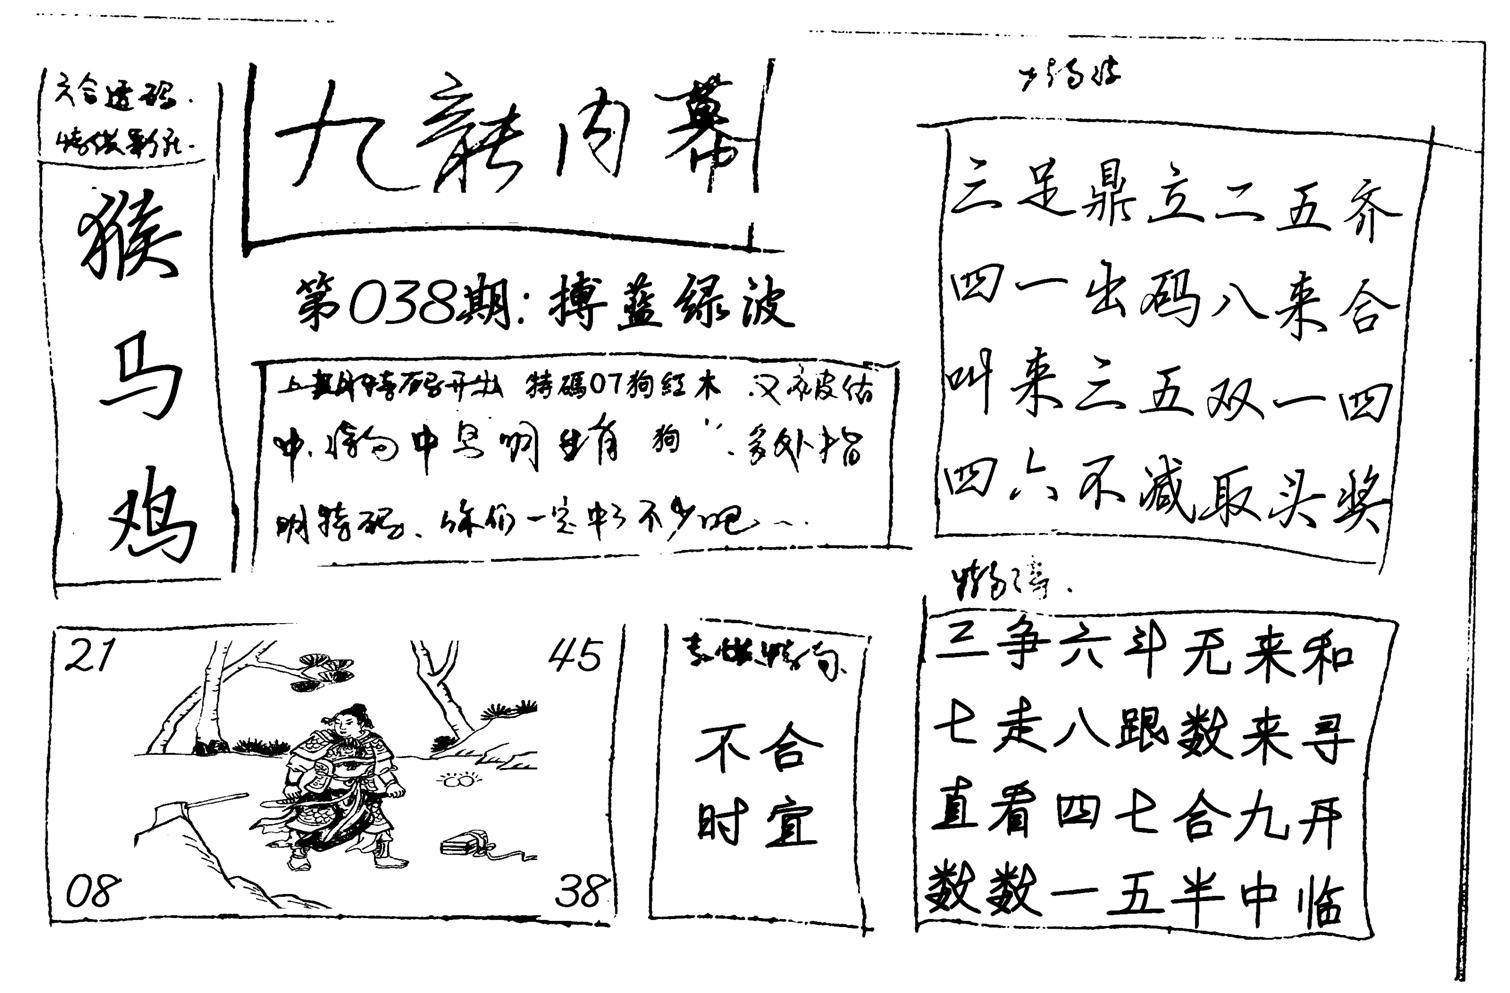 六合透码.
猴
马
鸡
九龍内幕
第038期:搏蓝绿波
上期特码开出 特碼07狗紅木 又被估
中.特 中号明生肖 狗".多处指
明特码、你们一定中了不少吧...
三足鼎立二五齐
四一出码八来合
叫来三五双一四
四六不减取头奖
三争六斗无来和
七走八跟数来寻
直看四七合九开
数数一五半中临
21
45
08
38
不合
时宜